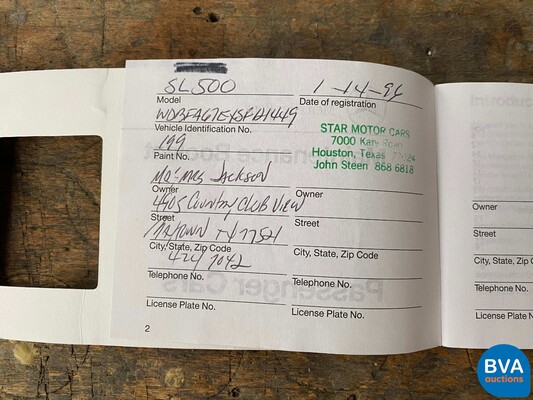 SL500
Model
1-14-96
Date of registration
Vehicle Identification No.
199
Paint No.
STAR MOTOR CARS
7000 Katy Road
Houston, Texas 77024
John Steen 868 6818
Jackson
Owner
4405 Country Club View
Street
Baytown TX 77521
City, State, Zip Code
424 7042
Telephone No.
License Plate No.
Owner
Street
City, State, Zip Code
Telephone No.
License Plate No.
2
Owner
Street
City, State, Zip C
Telephone No.
License Plate No.
Passenger Cars
BVA
auctions